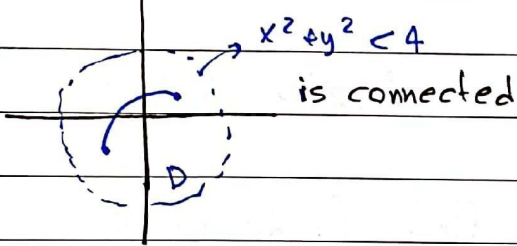 x² + y² < 4
is connected
D